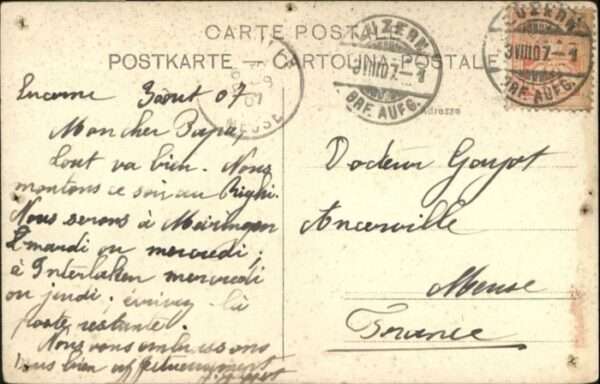 CARTE POSTALE
POSTKARTE — CARTOLINA POSTALE
LUZERN
3VIII07
BRF. AUFG.
LUZERN
3VIII07
BRF. AUFG.
MEUSE
Adresse
Lucerne 3 août 07
Mon cher Papa,
tout va bien. Nous
montons ce soir au Righi.
Nous serons à Meiringen
mardi ou mercredi,
à Interlaken mercredi
ou jeudi. écrivez là
poste restante.
Nous vous embrassons
tous bien affectueusement
Docteur
Ancerville
Meuse
France